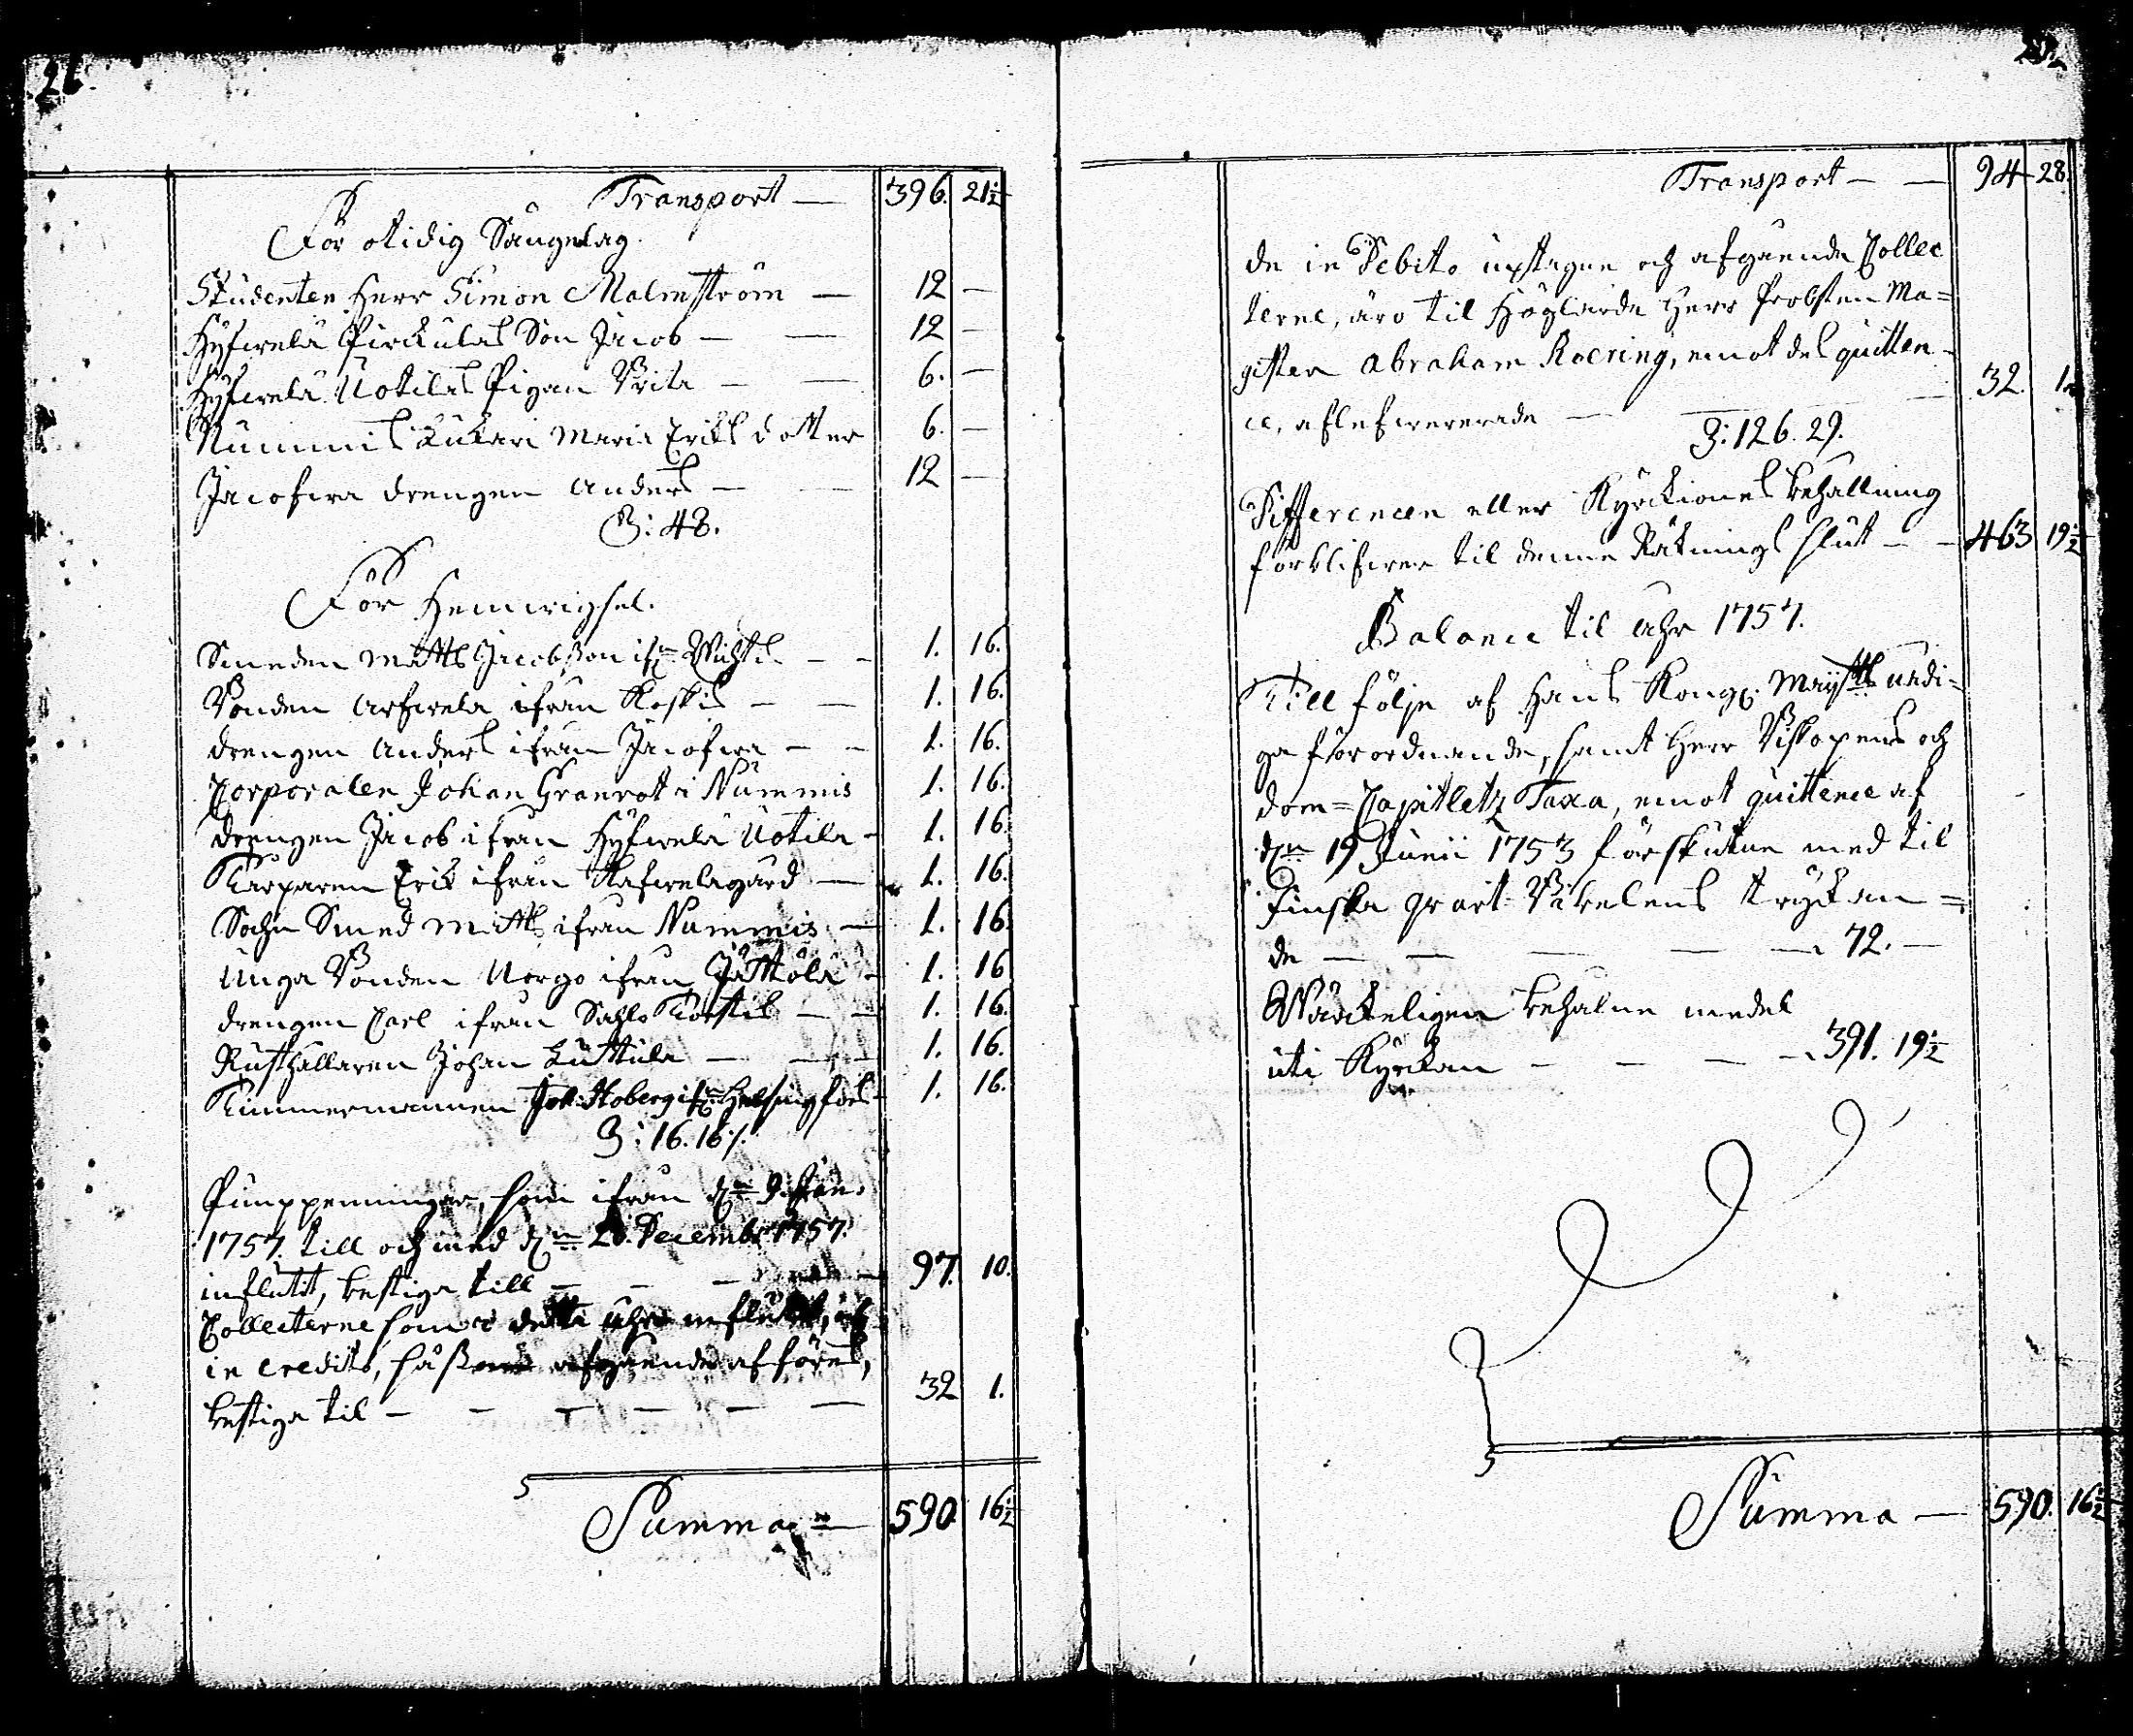 26.
Transport — 396. 21½
För otidig Sängelag.
Studenten Herr Simon Malmström — 12 —
Hyfwelä Pirckulas Son Jacob — — 12 —
Hyfwelä Uotilas Pigan Brita — — 6. —
Nummis Lukari Maria Eriks dotter 6. —
Jacofwa drengen Anders — — 12 —
S: 48.
För Hemwigsel.
Smeden Matts Jacobsson ifrn Wichtis — — 1. 16.
Bonden Arfwela ifrån Koskis — — 1. 16.
drengen Anders ifrån Jacofwa — — 1. 16.
Corporalen Johan Granrot i Nummis 1. 16.
drengen Jacob ifrån Hyfwelä Uotila — 1. 16.
Karparen Erik ifrån Hafwelagård — 1. 16.
Sochn Smed Matts ifrån Nummis — 1. 16.
Unga Bonden Norgo ifrån Jättölä — 1. 16
drengen Carl ifrån Sahlo — — 1. 16.
Rusthållaren Johan Luttula — — 1. 16.
Timmermannen Joh: Hoberg ifrn Helsingfors — 1. 16.
S: 16. 16 ⁒
Pungpenningar, som ifrån dn 9. Jan.
1757. till och med dn 26. Decembr 1757.
influtit, bestiga till — — — 97. 10.
Collecterne som i detta Åhr influtit, och
in Credito, såsom afgående afföres,
bestiga til — — — — — — 32 1.
Summa — 590. 16½
Transport — — 94 28.
de in Debito uptagne och afgående Collec
terne, äro til Höglärde Herr Probsten Ma=
gister Abraham Roering, emot des quitten
ce, aflefwererade — — — 32. 1.
S: 126. 29.
Differencen eller Kyrckiones behållning
förblifwer til denne Räknings slut — — 463 19½
Balance til Åhr 1757.
Till följe af Hans Kongl. Mayts nådi-
ga förordnande, samt Herr Biskopens och
Dom=Capitletz Taxa, emot quittence af
dn 19 Junii 1753 förskutne med til
Finska qvart-Bibelens tryckan=
de — — — — 72. —
Wärckeligen behålne medel
uti Kyrckan — — — — 391. 19½
Summa — 590. 16½